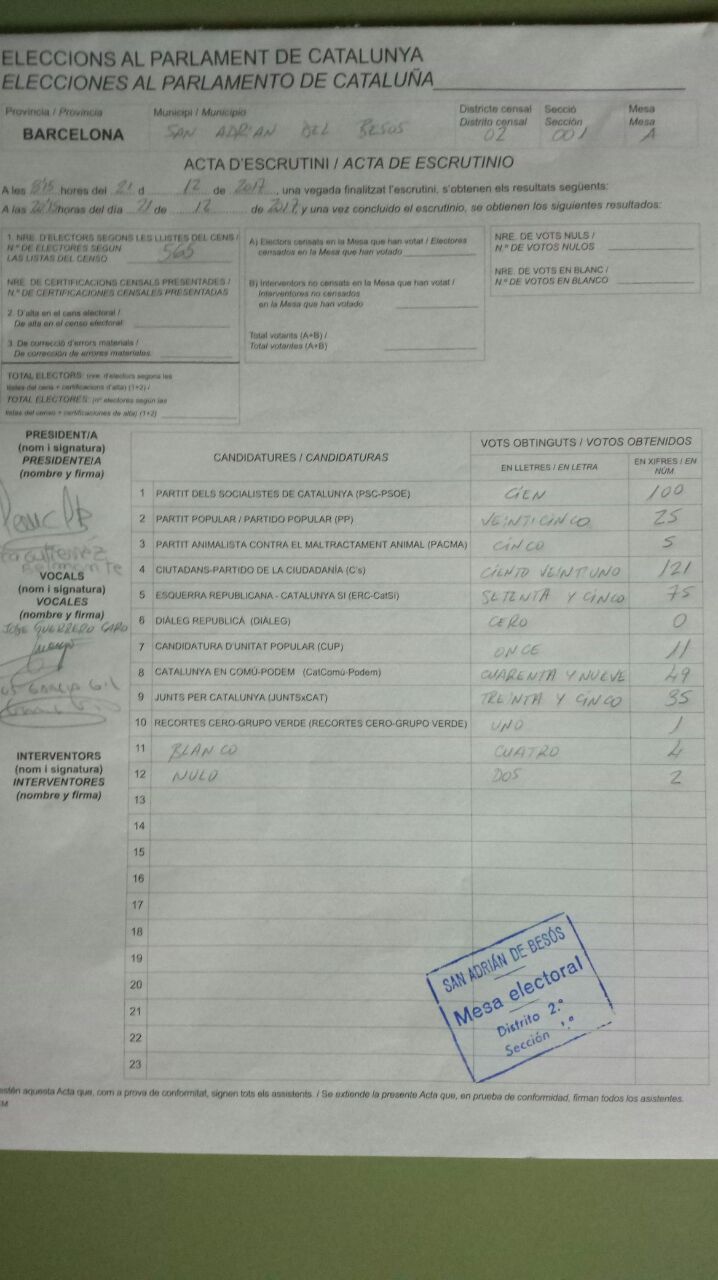 ELECCIONS AL PARLAMENT DE CATALUNYA
ELECCIONES AL PARLAMENTO DE CATALUÑA
Provincia / Provincia
BARCELONA
Municipi / Municipio
SAN ADRIAN DEL BESOS
Districte censal
Distrito censal
02
Secció
Sección
001
Mesa
Mesa
A
ACTA D'ESCRUTINI / ACTA DE ESCRUTINIO
A les 8'15 hores del 21 d 12 de 2017, una vegada finalitzat l'escrutini, s'obtenen els resultats següents:
A las 20'15 horas del día 21 de 12 de 2017, y una vez concluido el escrutinio, se obtienen los siguientes resultados:
1. NRE. D'ELECTORS SEGONS LES LLISTES DEL CENS /
N.º DE ELECTORES SEGÚN
LAS LISTAS DEL CENSO 565
NRE. DE CERTIFICACIONS CENSALS PRESENTADES /
N.º DE CERTIFICACIONES CENSALES PRESENTADAS
2. D'alta en el cens electoral /
De alta en el censo electoral
3. De correcció d'errors materials /
De corrección de errores materiales
TOTAL ELECTORS: (nre. d'electors segons les
llistes del cens + certificacions d'alta) (1+2) /
TOTAL ELECTORES: (nº electores según las
listas del censo + certificaciones de alta) (1+2)
A) Electors censats en la Mesa que han votat / Electores
censados en la Mesa que han votado
B) Interventors no censats en la Mesa que han votat /
Interventores no censados
en la Mesa que han votado
Total votants (A+B) /
Total votantes (A+B)
NRE. DE VOTS NULS /
N.º DE VOTOS NULOS
NRE. DE VOTS EN BLANC /
N.º DE VOTOS EN BLANCO
PRESIDENT/A
(nom i signatura)
PRESIDENTE/A
(nombre y firma)
VOCALS
(nom i signatura)
VOCALES
(nombre y firma)
JOSE GUERRERO CARO
INTERVENTORS
(nom i signatura)
INTERVENTORES
(nombre y firma)
CANDIDATURES / CANDIDATURAS
VOTS OBTINGUTS / VOTOS OBTENIDOS
EN LLETRES / EN LETRA
EN XIFRES / EN
NÚM
1 PARTIT DELS SOCIALISTES DE CATALUNYA (PSC-PSOE) CIEN 100
2 PARTIT POPULAR / PARTIDO POPULAR (PP) VEINTICINCO 25
3 PARTIT ANIMALISTA CONTRA EL MALTRACTAMENT ANIMAL (PACMA) CINCO 5
4 CIUTADANS-PARTIDO DE LA CIUDADANÍA (C's) CIENTO VEINTIUNO 121
5 ESQUERRA REPUBLICANA - CATALUNYA SÍ (ERC-CatSí) SETENTA Y CINCO 75
6 DIÀLEG REPUBLICÀ (DIÀLEG) CERO 0
7 CANDIDATURA D'UNITAT POPULAR (CUP) ONCE 11
8 CATALUNYA EN COMÚ-PODEM (CatComú-Podem) CUARENTA Y NUEVE 49
9 JUNTS PER CATALUNYA (JUNTSxCAT) TREINTA Y CINCO 35
10 RECORTES CERO-GRUPO VERDE (RECORTES CERO-GRUPO VERDE) UNO 1
11 BLANCO CUATRO 4
12 NULO DOS 2
13
14
15
16
17
18
19
20
21
22
23
SAN ADRIÁN DE BESÓS
Mesa electoral
Distrito 2.º
Sección 1.ª
estén aquesta Acta que, com a prova de conformitat, signen tots els assistents. / Se extiende la presente Acta que, en prueba de conformidad, firman todos los asistentes.